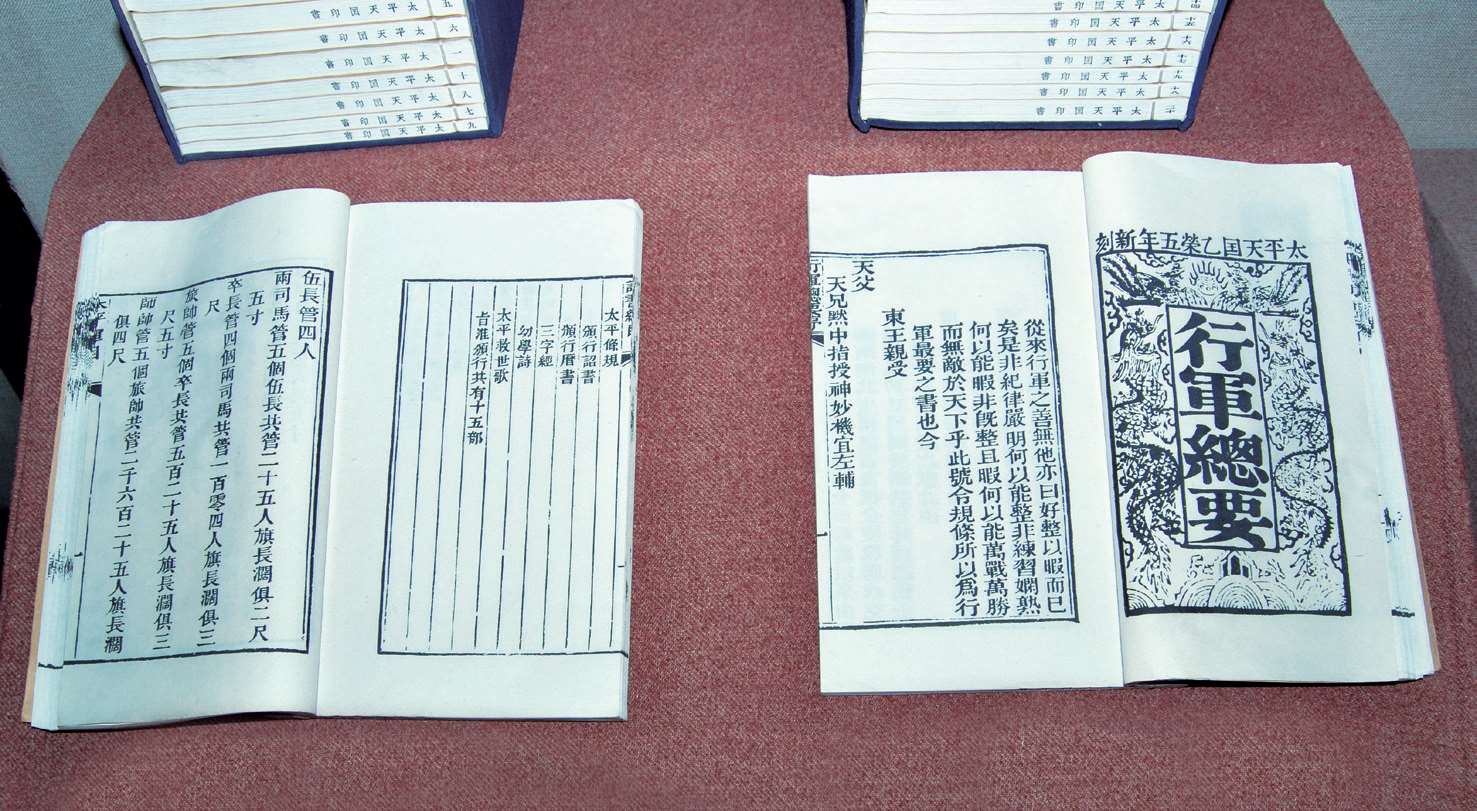 五 太平天囯印書
六 太平天囯印書
一 太平天囯印書
十 太平天囯印書
八 太平天囯印書
七 太平天囯印書
九 太平天囯印書
十五 太平天囯印書
十六 太平天囯印書
十七 太平天囯印書
十九 太平天囯印書
十八 太平天囯印書
二十 太平天囯印書
太平天囯乙榮五年新刻
行軍總要
從來行軍之善無他亦曰好整以暇而已
矣是非紀律嚴明何以能整非練習嫻熟
何以能暇非旣整且暇何以能萬戰萬勝
而無敵於天下乎此號令規條所以爲行
軍最要之書也今
東王親受
天父
天兄默中指授神妙機宜左輔
太平條規
頒行詔書
頒行曆書
三字經
幼學詩
太平救世歌
旨准頒行共有十五部
伍長管四人
兩司馬管五個伍長共管二十五人旗長濶俱二尺
五寸
卒長管四個兩司馬共管一百零四人旗長濶俱三
尺
旅帥管五個卒長共管五百二十五人旗長濶俱三
尺五寸
師帥管五個旅帥共管二千六百二十五人旗長濶
俱四尺
太平軍目